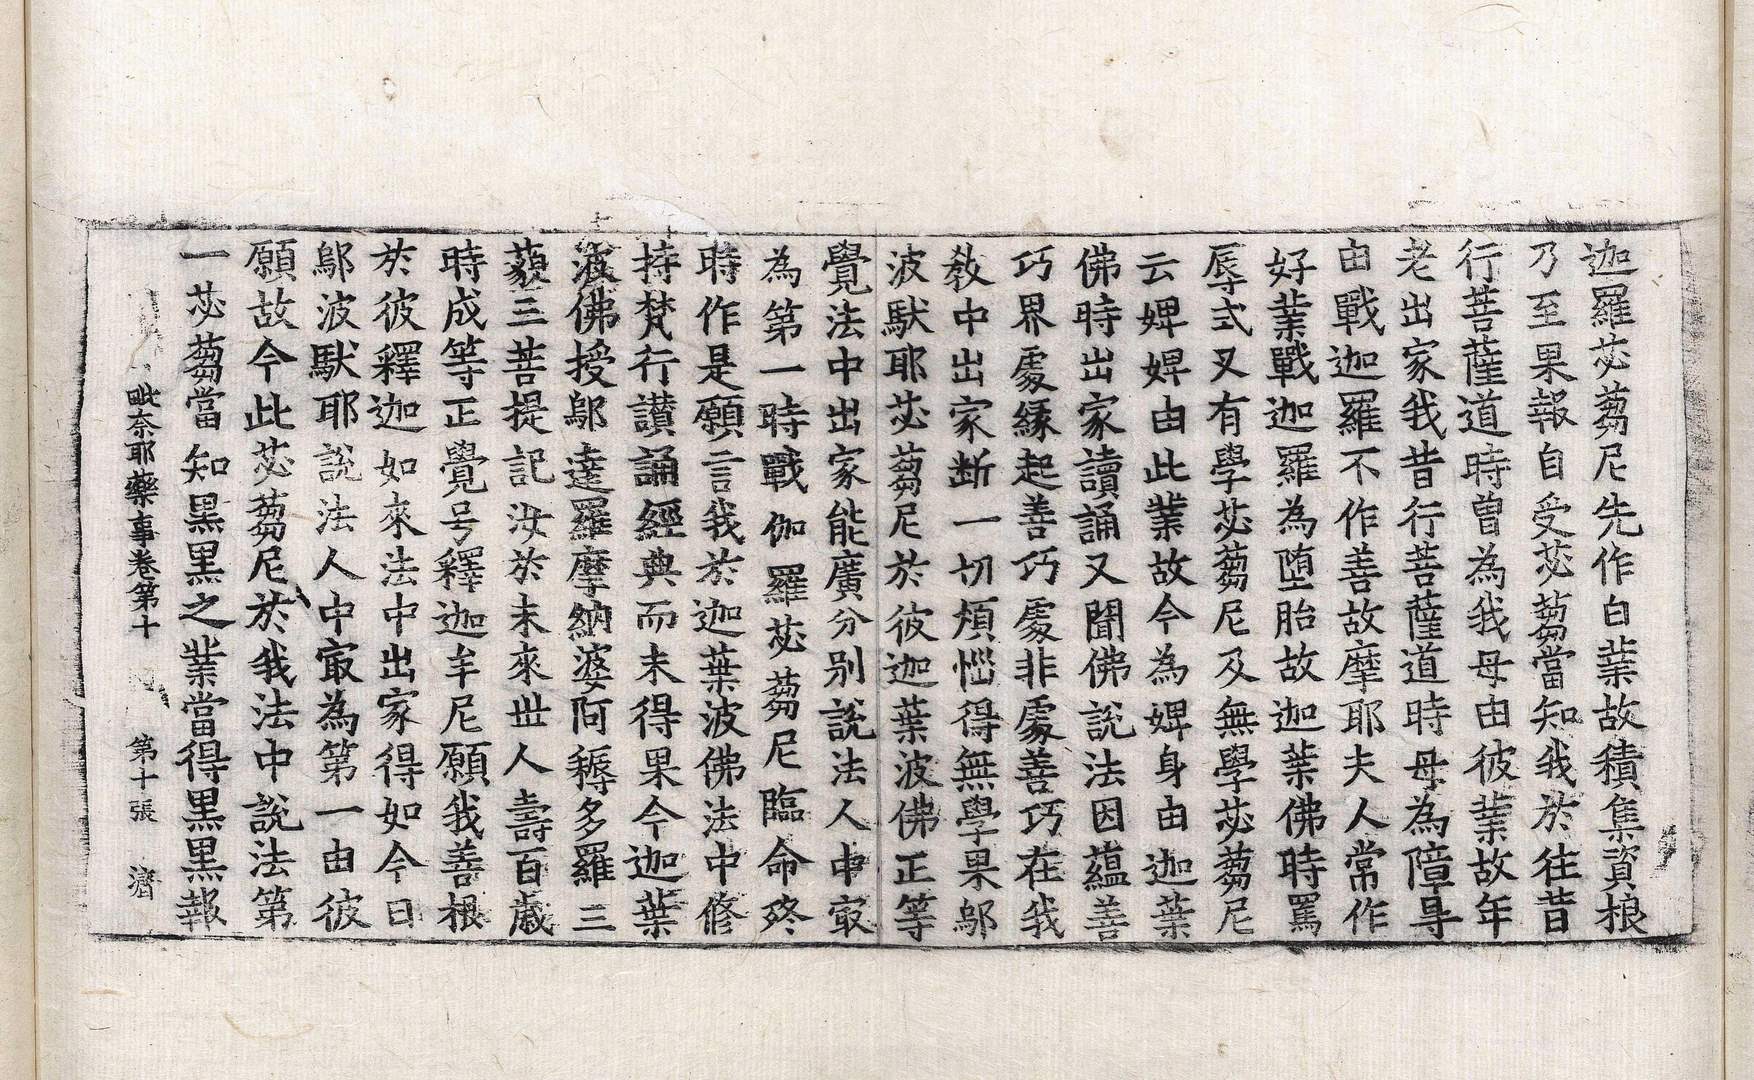 迦羅苾蒭尼先作白業故積集資粮
乃至果報自受苾蒭當知我於往昔
行菩薩道時曾為我母由彼業故年
老出家我昔行菩薩道時母為障㝵
由戰迦羅不作善故摩耶夫人常作
好業戰迦羅為堕胎故迦葉佛時罵
辱式叉有學苾蒭尼及無學苾蒭尼
云婢婢由此業故今為婢身由迦葉
佛時出家讀誦又聞佛說法因蘊善
巧界處縁起善巧處非處善巧在我
教中出家断一切煩惱得無學果鄔
波馱耶苾蒭尼於彼迦葉波佛正等
覺法中出家能廣分別說法人中㝡
為第一時戰伽羅苾蒭尼臨命終
時作是願言我於迦葉波佛法中修
持梵行讃誦經典而未得果今迦葉
波佛授鄔達羅摩納婆阿耨多羅三
藐三菩提記汝於未來世人壽百歳
時成等正覺号釋迦牟尼願我善根
於彼釋迦如來法中出家得如今日
鄔波馱耶說法人中㝡為第一由彼
願故今此苾蒭尼於我法中說法第
一苾蒭當知黒黒之業當得黒黒報
毗奈耶藥事卷第十 第十張 濟